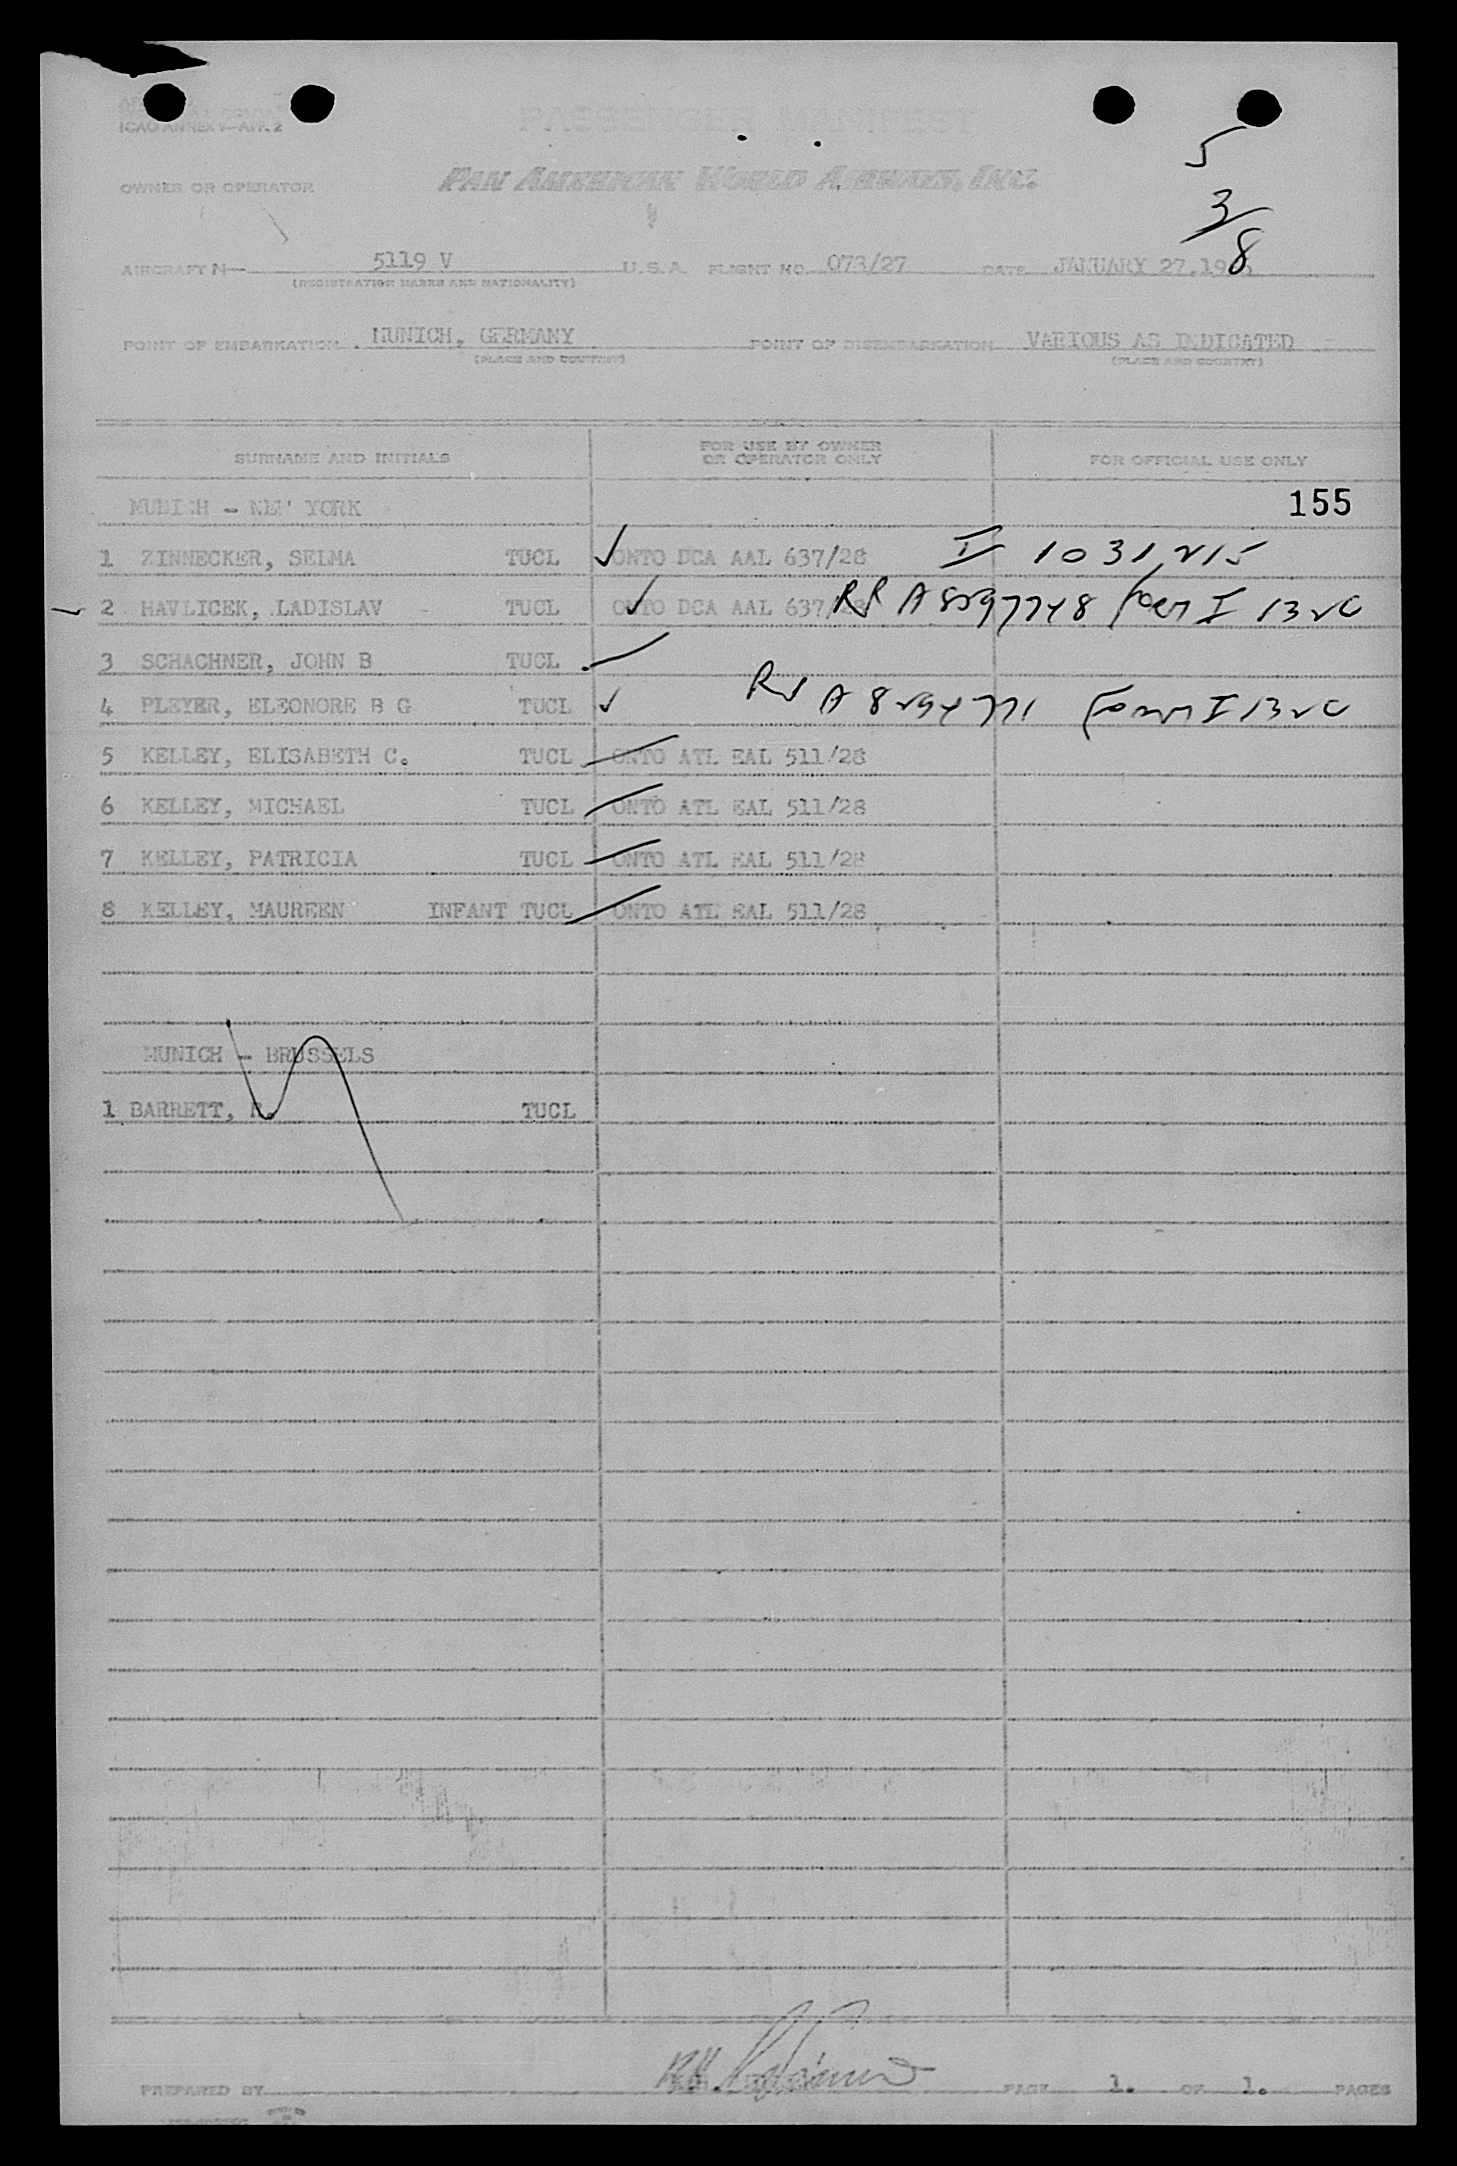 ICAO ANNEX 9—APP. 2
PASSENGER MANIFEST
OWNER OR OPERATOR PAN AMERICAN WORLD AIRWAYS, INC.
5
3/8
AIRCRAFT N— 5119 V U.S.A. FLIGHT NO. 073/27 DATE JANUARY 27.19
(REGISTRATION MARKS AND NATIONALITY)
POINT OF EMBARKATION MUNICH, GERMANY POINT OF DISEMBARKATION VARIOUS AS INDICATED
(PLACE AND COUNTRY) (PLACE AND COUNTRY)
SURNAME AND INITIALS FOR USE BY OWNER OR OPERATOR ONLY FOR OFFICIAL USE ONLY
MUNICH - NEW YORK 155
1 ZINNECKER, SELMA TUCL ONTO DCA AAL 637/28 I 1031215
2 HAVLICEK, LADISLAV - TUCL ONTO DCA AAL 637/28 Form I 132C
3 SCHACHNER, JOHN B TUCL
4 PLEYER, ELEONORE B G TUCL Form I 132C
5 KELLEY, ELISABETH C. TUCL ONTO ATL EAL 511/28
6 KELLEY, MICHAEL TUCL ONTO ATL EAL 511/28
7 KELLEY, PATRICIA TUCL ONTO ATL EAL 511/28
8 KELLEY, MAUREEN INFANT TUCL ONTO ATL EAL 511/28
MUNICH - BRUSSELS
1 BARRETT, TUCL
PREPARED BY PAGE 1. OF 1. PAGES